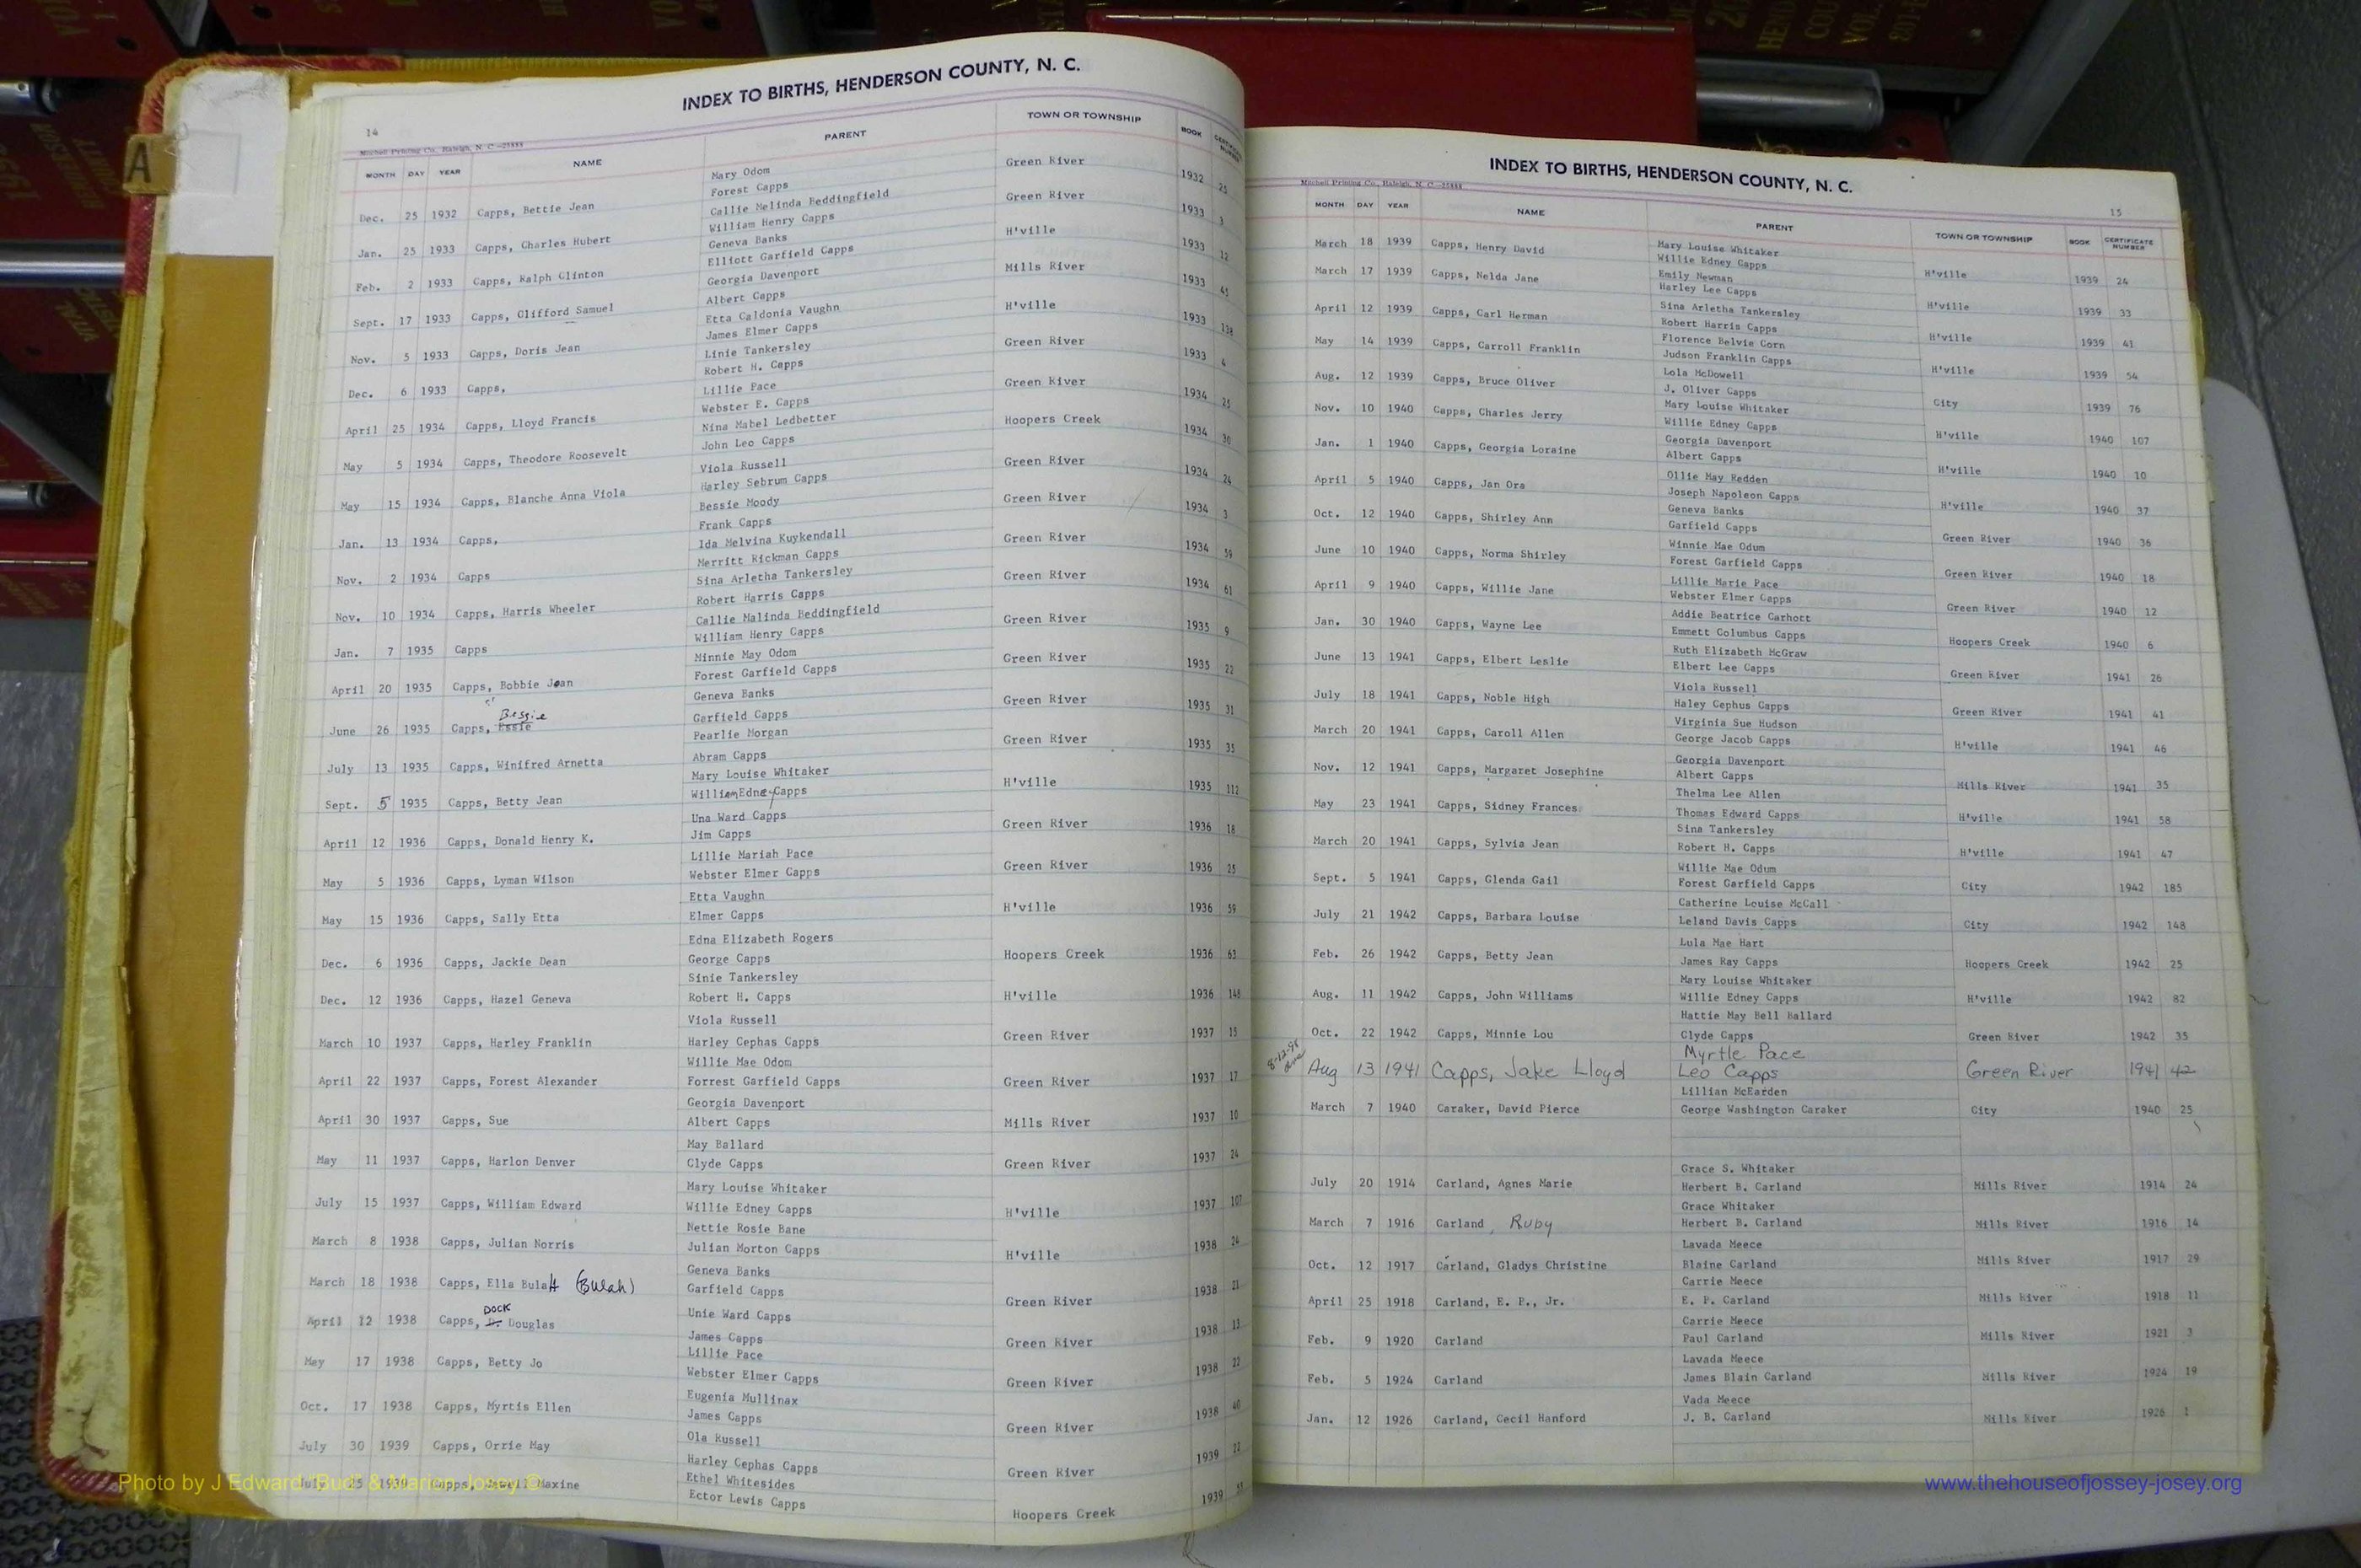 INDEX TO BIRTHS, HENDERSON COUNTY, N. C.
14
Mitchell Printing Co., Raleigh, N. C.—25888
MONTH DAY YEAR NAME PARENT TOWN OR TOWNSHIP BOOK CERTIFICATE NUMBER
Mary Odom
Dec. 25 1932 Capps, Bettie Jean Forest Capps Green River 1932 25
Callie Melinda Beddingfield
Jan. 25 1933 Capps, Charles Hubert William Henry Capps Green River 1933 3
Geneva Banks
Feb. 2 1933 Capps, Ralph Clinton Elliott Garfield Capps H'ville 1933 12
Georgia Davenport
Sept. 17 1933 Capps, Clifford Samuel Albert Capps Mills River 1933 45
Etta Caldonia Vaughn
Nov. 5 1933 Capps, Doris Jean James Elmer Capps H'ville 1933 138
Linie Tankersley
Dec. 6 1933 Capps, Robert H. Capps Green River 1933 4
Lillie Pace
April 25 1934 Capps, Lloyd Francis Webster E. Capps Green River 1934 25
Nina Mabel Ledbetter
May 5 1934 Capps, Theodore Roosevelt John Leo Capps Hoopers Creek 1934 30
Viola Russell
May 15 1934 Capps, Blanche Anna Viola Harley Sebrum Capps Green River 1934 24
Bessie Moody
Jan. 13 1934 Capps, Frank Capps Green River 1934 3
Ida Melvina Kuykendall
Nov. 2 1934 Capps Merritt Rickman Capps Green River 1934 59
Sina Arletha Tankersley
Nov. 10 1934 Capps, Harris Wheeler Robert Harris Capps Green River 1934 61
Callie Malinda Beddingfield
Jan. 7 1935 Capps William Henry Capps Green River 1935 9
Minnie May Odom
April 20 1935 Capps, Bobbie Jean Forest Garfield Capps Green River 1935 22
Geneva Banks
Bessie
June 26 1935 Capps, Essie Garfield Capps Green River 1935 31
Pearlie Morgan
July 13 1935 Capps, Winifred Arnetta Abram Capps Green River 1935 35
Mary Louise Whitaker
Sept. 5 1935 Capps, Betty Jean William Edney Capps H'ville 1935 112
Una Ward Capps
April 12 1936 Capps, Donald Henry K. Jim Capps Green River 1936 18
Lillie Mariah Pace
May 5 1936 Capps, Lyman Wilson Webster Elmer Capps Green River 1936 25
Etta Vaughn
May 15 1936 Capps, Sally Etta Elmer Capps H'ville 1936 59
Edna Elizabeth Rogers
Dec. 6 1936 Capps, Jackie Dean George Capps Hoopers Creek 1936 63
Sinie Tankersley
Dec. 12 1936 Capps, Hazel Geneva Robert H. Capps H'ville 1936 148
Viola Russell
March 10 1937 Capps, Harley Franklin Harley Cephas Capps Green River 1937 15
Willie Mae Odom
April 22 1937 Capps, Forest Alexander Forrest Garfield Capps Green River 1937 17
Georgia Davenport
April 30 1937 Capps, Sue Albert Capps Mills River 1937 10
May Ballard
May 11 1937 Capps, Harlon Denver Clyde Capps Green River 1937 24
Mary Louise Whitaker
July 15 1937 Capps, William Edward Willie Edney Capps H'ville 1937 107
Nettie Rosie Bane
March 8 1938 Capps, Julian Norris Julian Morton Capps H'ville 1938 24
Geneva Banks
March 18 1938 Capps, Ella BulaH (Bulah) Garfield Capps Green River 1938 21
Unie Ward Capps
DOCK
April 12 1938 Capps, D. Douglas James Capps Green River 1938 13
Lillie Pace
May 17 1938 Capps, Betty Jo Webster Elmer Capps Green River 1938 22
Eugenia Mullinax
Oct. 17 1938 Capps, Myrtis Ellen James Capps Green River 1938 40
Ola Russell
July 30 1939 Capps, Orrie May Harley Cephas Capps Green River 1939 22
Ethel Whitesides
July Capps, Maxine Ector Lewis Capps Hoopers Creek 1939
Photo by J Edward "Bud" & Marion Josey ©
INDEX TO BIRTHS, HENDERSON COUNTY, N. C.
Mitchell Printing Co., Raleigh, N. C.—25888
15
MONTH DAY YEAR NAME PARENT TOWN OR TOWNSHIP BOOK CERTIFICATE NUMBER
Mary Louise Whitaker
March 18 1939 Capps, Henry David Willie Edney Capps H'ville 1939 24
Emily Newman
March 17 1939 Capps, Nelda Jane Harley Lee Capps H'ville 1939 33
Sina Arletha Tankersley
April 12 1939 Capps, Carl Herman Robert Harris Capps H'ville 1939 41
Florence Belvie Corn
May 14 1939 Capps, Carroll Franklin Judson Franklin Capps H'ville 1939 54
Lola McDowell
Aug. 12 1939 Capps, Bruce Oliver J. Oliver Capps City 1939 76
Mary Louise Whitaker
Nov. 10 1940 Capps, Charles Jerry Willie Edney Capps H'ville 1940 107
Georgia Davenport
Jan. 1 1940 Capps, Georgia Loraine Albert Capps H'ville 1940 10
Ollie May Redden
April 5 1940 Capps, Jan Ora Joseph Napoleon Capps H'ville 1940 37
Geneva Banks
Oct. 12 1940 Capps, Shirley Ann Garfield Capps Green River 1940 36
Winnie Mae Odum
June 10 1940 Capps, Norma Shirley Forest Garfield Capps Green River 1940 18
Lillie Marie Pace
April 9 1940 Capps, Willie Jane Webster Elmer Capps Green River 1940 12
Addie Beatrice Garhott
Jan. 30 1940 Capps, Wayne Lee Emmett Columbus Capps Hoopers Creek 1940 6
Ruth Elizabeth McGraw
June 13 1941 Capps, Elbert Leslie Elbert Lee Capps Green River 1941 26
Viola Russell
July 18 1941 Capps, Noble High Haley Cephus Capps Green River 1941 41
Virginia Sue Hudson
March 20 1941 Capps, Caroll Allen George Jacob Capps H'ville 1941 46
Georgia Davenport
Nov. 12 1941 Capps, Margaret Josephine Albert Capps Mills River 1941 35
Thelma Lee Allen
May 23 1941 Capps, Sidney Frances Thomas Edward Capps H'ville 1941 58
Sina Tankersley
March 20 1941 Capps, Sylvia Jean Robert H. Capps H'ville 1941 47
Willie Mae Odum
Sept. 5 1941 Capps, Glenda Gail Forest Garfield Capps City 1942 185
Catherine Louise McCall
July 21 1942 Capps, Barbara Louise Leland Davis Capps City 1942 148
Lula Mae Hart
Feb. 26 1942 Capps, Betty Jean James Ray Capps Hoopers Creek 1942 25
Mary Louise Whitaker
Aug. 11 1942 Capps, John Williams Willie Edney Capps H'ville 1942 82
Hattie May Bell Ballard
Oct. 22 1942 Capps, Minnie Lou Clyde Capps Green River 1942 35
Myrtle Pace
8-12-98 Aug 13 1941 Capps, Jake Lloyd Leo Capps Green River 1941 42
Lillian McEarden
March 7 1940 Caraker, David Pierce George Washington Caraker City 1940 25
Grace S. Whitaker
July 20 1914 Carland, Agnes Marie Herbert B. Carland Mills River 1914 24
Grace Whitaker
March 7 1916 Carland, Ruby Herbert B. Carland Mills River 1916 14
Lavada Meece
Oct. 12 1917 Carland, Gladys Christine Blaine Carland Mills River 1917 29
Carrie Meece
April 25 1918 Carland, E. P., Jr. E. P. Carland Mills River 1918 11
Carrie Meece
Feb. 9 1920 Carland Paul Carland Mills River 1921 3
Lavada Meece
Feb. 5 1924 Carland James Blain Carland Mills River 1924 19
Vada Meece
Jan. 12 1926 Carland, Cecil Hanford J. B. Carland Mills River 1926 1
www.thehouseofjossey-josey.org
A